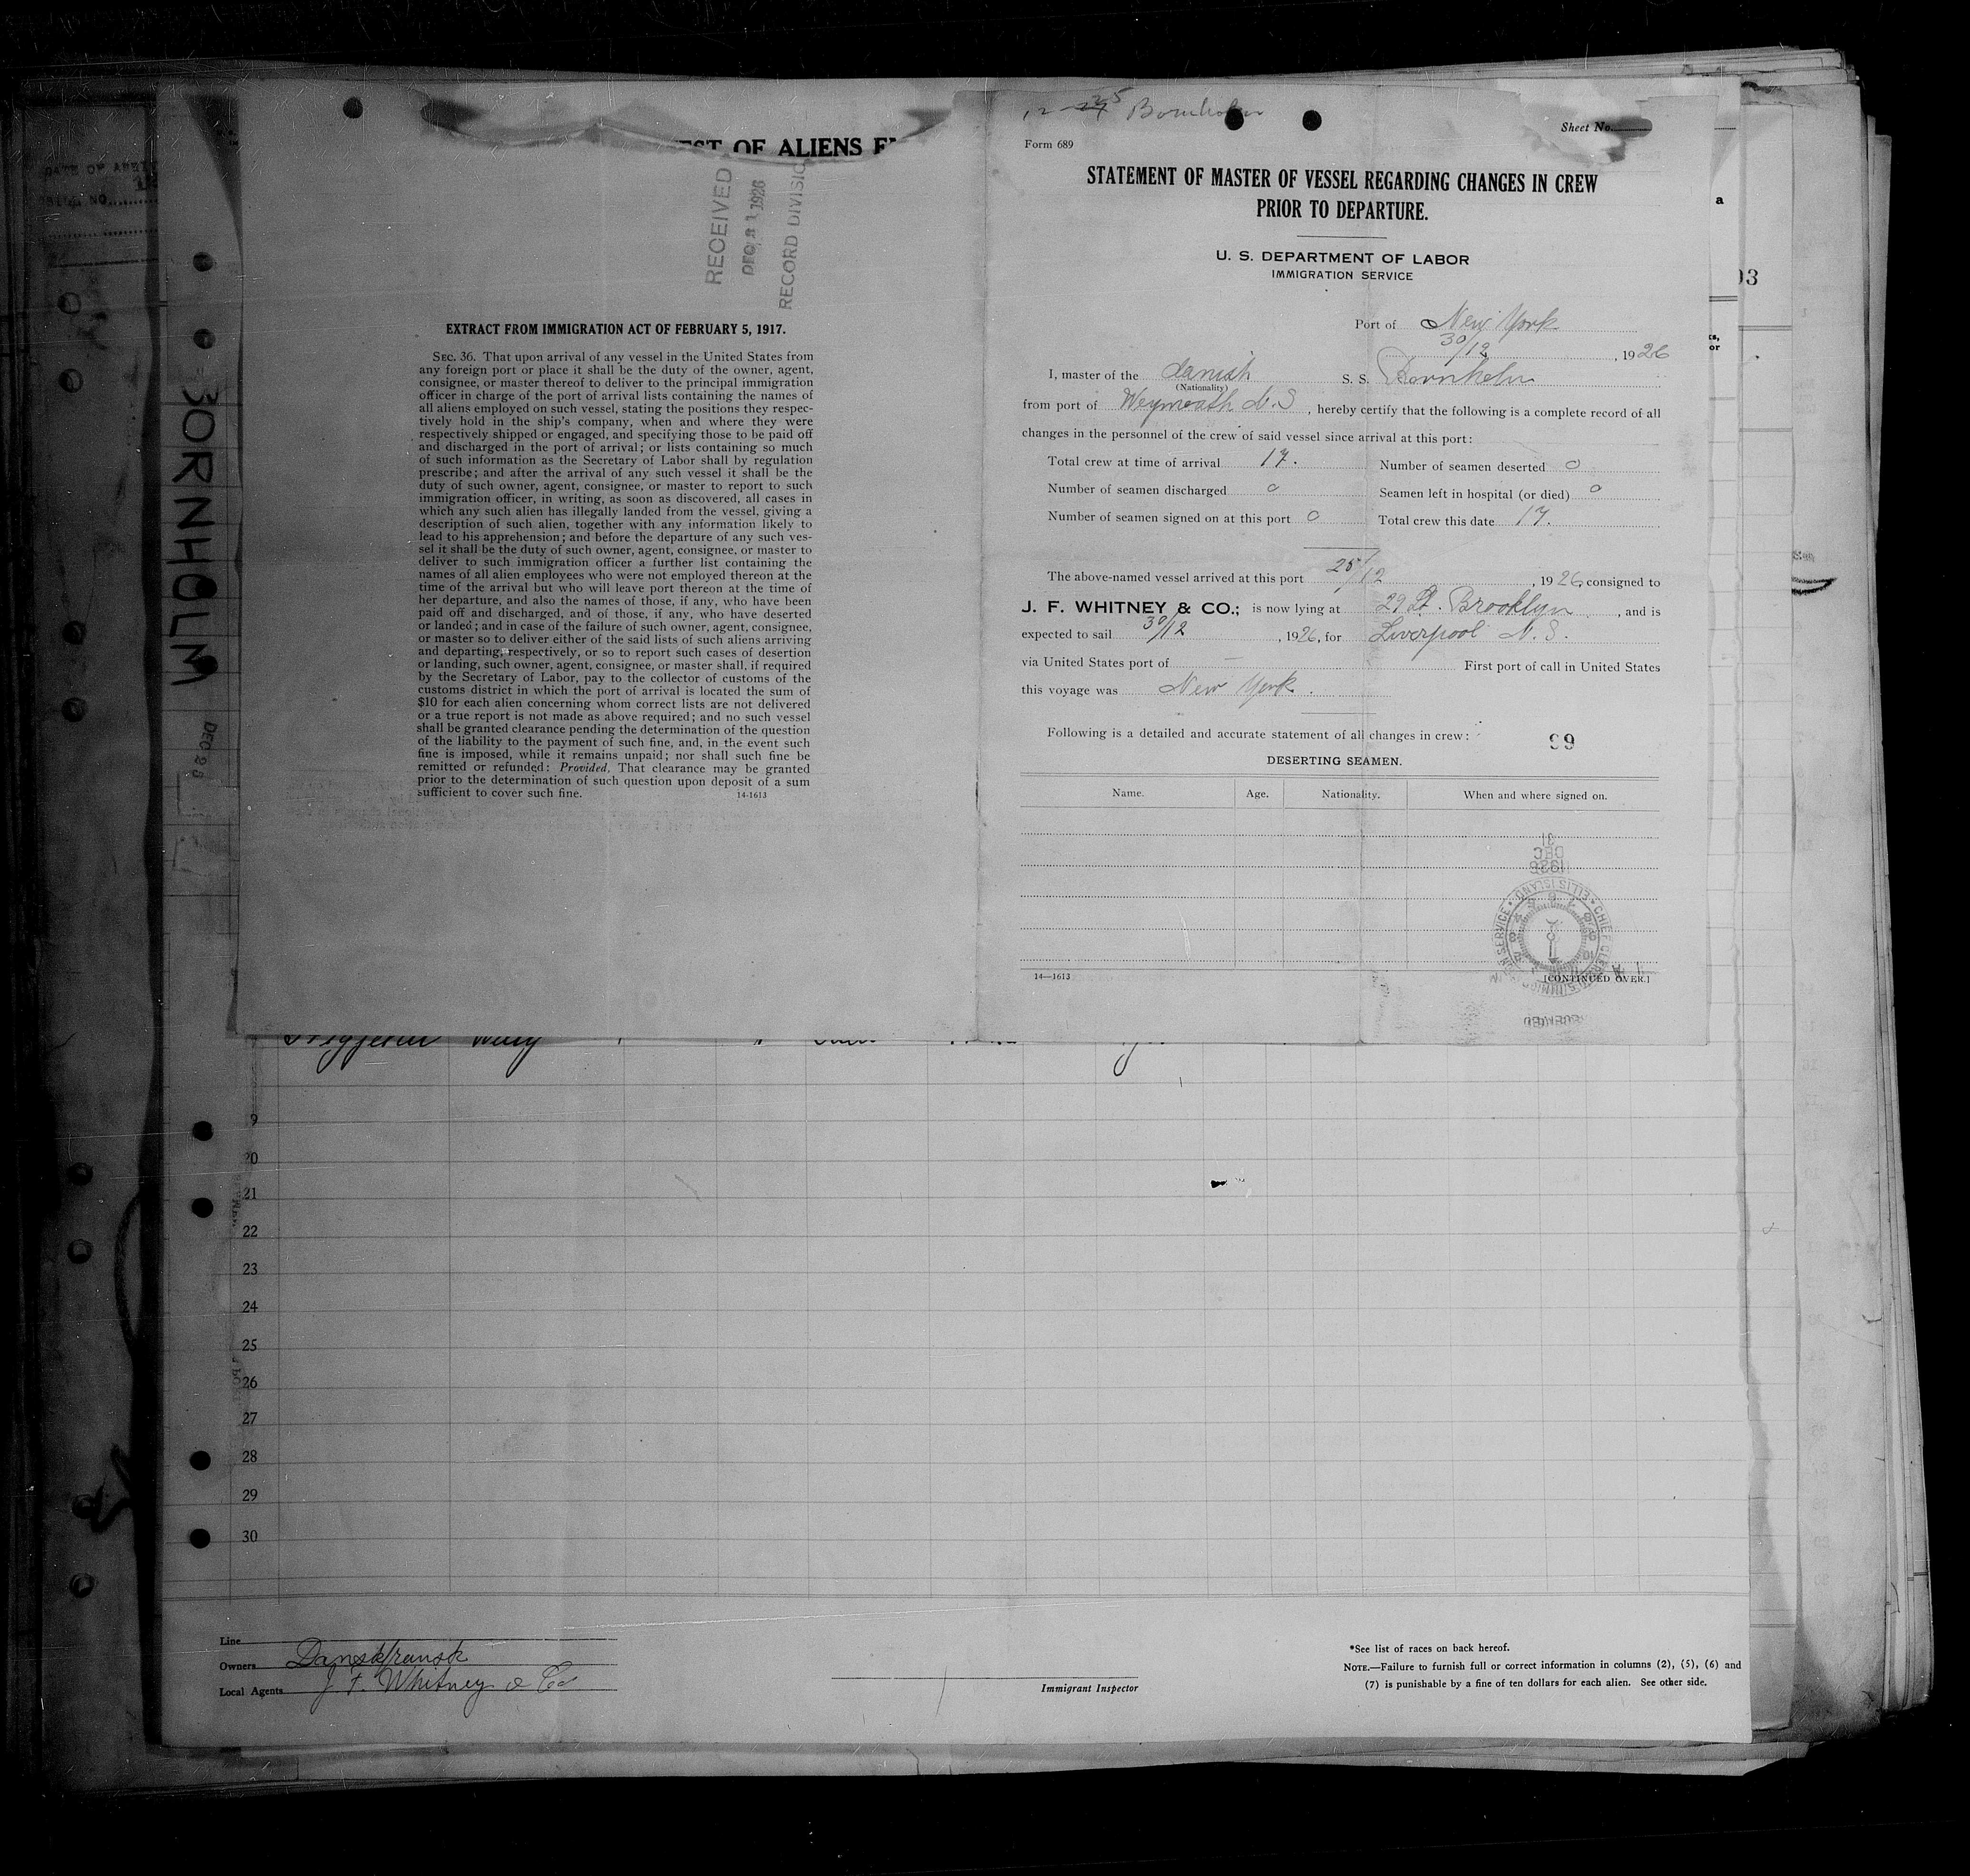 DATE OF
NO.
BORNHOLM
DEC 28
EST OF ALIENS EM
RECEIVED
DEC 31 1926
RECORD DIVISIO
EXTRACT FROM IMMIGRATION ACT OF FEBRUARY 5, 1917.
SEC. 36. That upon arrival of any vessel in the United States from
any foreign port or place it shall be the duty of the owner, agent,
consignee, or master thereof to deliver to the principal immigration
officer in charge of the port of arrival lists containing the names of
all aliens employed on such vessel, stating the positions they respec-
tively hold in the ship's company, when and where they were
respectively shipped or engaged, and specifying those to be paid off
and discharged in the port of arrival; or lists containing so much
of such information as the Secretary of Labor shall by regulation
prescribe; and after the arrival of any such vessel it shall be the
duty of such owner, agent, consignee, or master to report to such
immigration officer, in writing, as soon as discovered, all cases in
which any such alien has illegally landed from the vessel, giving a
description of such alien, together with any information likely to
lead to his apprehension; and before the departure of any such ves-
sel it shall be the duty of such owner, agent, consignee, or master to
deliver to such immigration officer a further list containing the
names of all alien employees who were not employed thereon at the
time of the arrival but who will leave port thereon at the time of
her departure, and also the names of those, if any, who have been
paid off and discharged, and of those, if any, who have deserted
or landed; and in case of the failure of such owner, agent, consignee,
or master so to deliver either of the said lists of such aliens arriving
and departing, respectively, or so to report such cases of desertion
or landing, such owner, agent, consignee, or master shall, if required
by the Secretary of Labor, pay to the collector of customs of the
customs district in which the port of arrival is located the sum of
$10 for each alien concerning whom correct lists are not delivered
or a true report is not made as above required; and no such vessel
shall be granted clearance pending the determination of the question
of the liability to the payment of such fine, and, in the event such
fine is imposed, while it remains unpaid; nor shall such fine be
remitted or refunded: Provided, That clearance may be granted
prior to the determination of such question upon deposit of a sum
sufficient to cover such fine. 14-1613
12-25 Bornholm
Sheet No.
Form 689
STATEMENT OF MASTER OF VESSEL REGARDING CHANGES IN CREW
PRIOR TO DEPARTURE.
U. S. DEPARTMENT OF LABOR
IMMIGRATION SERVICE
Port of New York
30/12, 1926
I, master of the danish S. S. Bornholm
(Nationality)
from port of Weymouth N.S, hereby certify that the following is a complete record of all
changes in the personnel of the crew of said vessel since arrival at this port:
Total crew at time of arrival 17. Number of seamen deserted 0
Number of seamen discharged 0 Seamen left in hospital (or died) 0
Number of seamen signed on at this port 0 Total crew this date 17.
The above-named vessel arrived at this port 25/12, 1926, consigned to
J. F. WHITNEY & CO.; is now lying at 29 St. Brooklyn, and is
expected to sail 30/12, 1926, for Liverpool N. S.
via United States port of — First port of call in United States
this voyage was New York.
Following is a detailed and accurate statement of all changes in crew:
99
DESERTING SEAMEN.
Name. Age. Nationality. When and where signed on.
31
DEC
1926
CHIEF CLERK
ELLIS ISLAND
14—1613 [CONTINUED OVER.]
9
20
21
22
23
24
25
26
27
28
29
30
Line
Owners Danskfransk
Local Agents J. F. Whitney & Co
Immigrant Inspector
*See list of races on back hereof.
NOTE.—Failure to furnish full or correct information in columns (2), (5), (6) and
(7) is punishable by a fine of ten dollars for each alien. See other side.